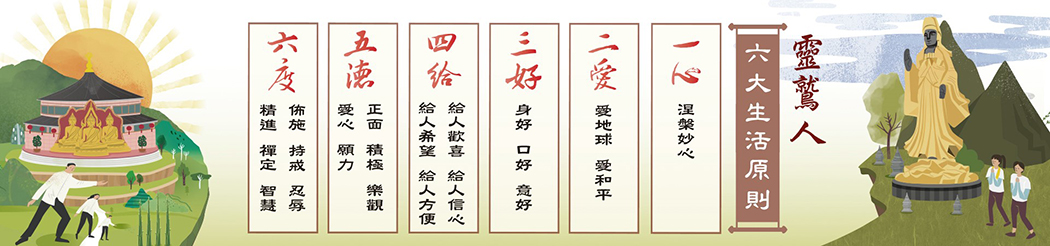 靈鷲人
六大生活原則
一心
涅槃妙心
二愛
愛地球 愛和平
三好
身好 口好 意好
四給
給人歡喜 給人信心
給人希望 給人方便
五德
正面 積極 樂觀
愛心 願力
六度
佈施 持戒 忍辱
精進 禪定 智慧